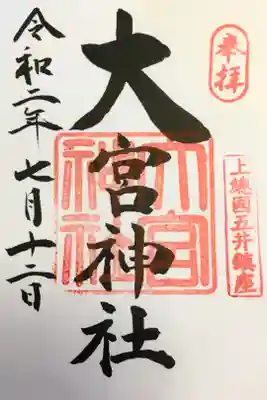 奉拝
上總国五井鎮座
大宮神社
大宮神社
令和二年七月十二日